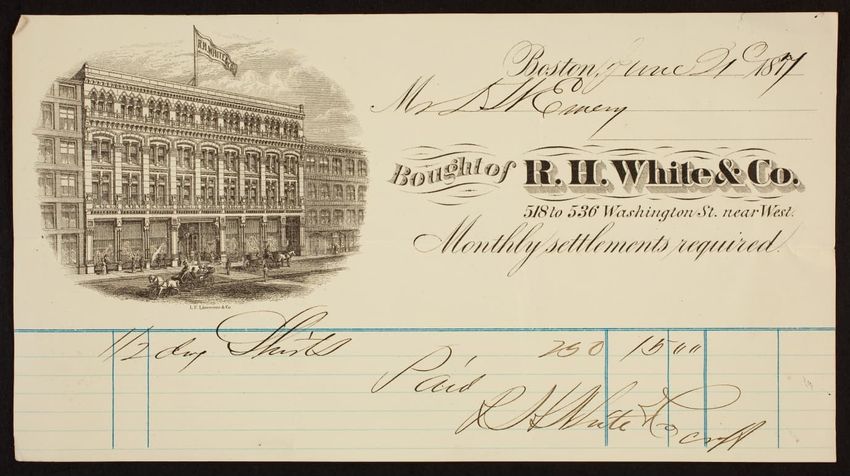 R.H. WHITE & CO.
Boston, June 21 187
Mr Emery
Bought of R. H. White & Co.
518 to 536 Washington St. near West.
Monthly settlements required.
1/2 doz Shirts 250 15 00
Paid
R H White & Co